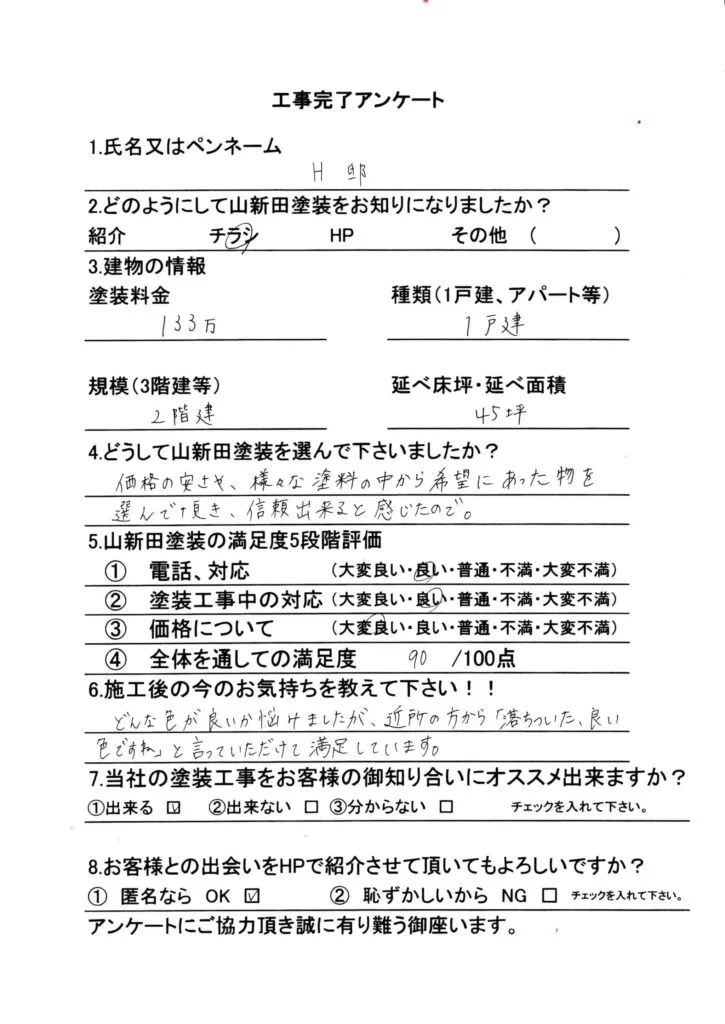 工事完了アンケート
1.氏名又はペンネーム
H 邸
2.どのようにして山新田塗装をお知りになりましたか？
紹介 チラシ HP その他 （ ）
3.建物の情報
塗装料金 種類（1戸建、アパート等）
133万 1戸建
規模（3階建等） 延べ床坪・延べ面積
2階建 45坪
4.どうして山新田塗装を選んで下さいましたか？
価格の安さや、様々な塗料の中から希望にあった物を
選んで頂き、信頼出来ると感じたので。
5.山新田塗装の満足度5段階評価
① 電話、対応 （大変良い・良い・普通・不満・大変不満）
② 塗装工事中の対応 （大変良い・良い・普通・不満・大変不満）
③ 価格について （大変良い・良い・普通・不満・大変不満）
④ 全体を通しての満足度 90 /100点
6.施工後の今のお気持ちを教えて下さい！！
どんな色が良いか悩けましたが、近所の方から「落ちついた、良い
色ですね」と言っていただけて満足しています。
7.当社の塗装工事をお客様の御知り合いにオススメ出来ますか？
①出来る ☑ ②出来ない □ ③分からない □ チェックを入れて下さい。
8.お客様との出会いをHPで紹介させて頂いてもよろしいですか？
① 匿名なら OK ☑ ② 恥ずかしいから NG □ チェックを入れて下さい。
アンケートにご協力頂き誠に有り難う御座います。